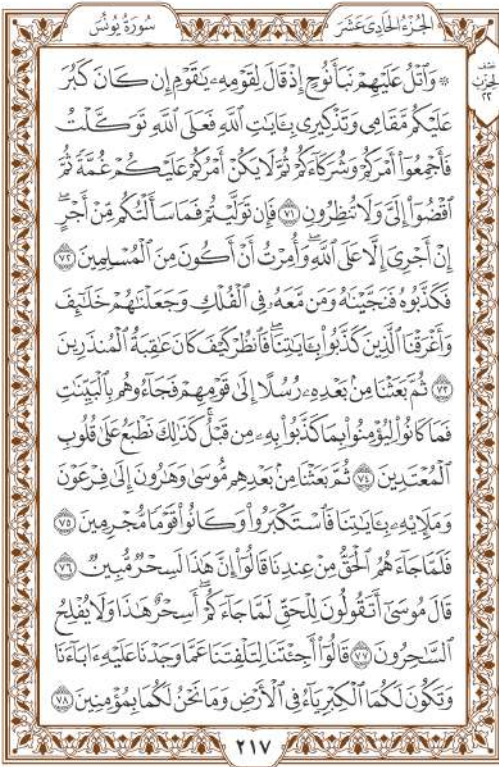 سُورَةُ يُونُسَ
الجُزْءُ الحَادِىَ عَشَرَ
نصف
الحزب
٢٢
۞ وَٱتۡلُ عَلَيۡهِمۡ نَبَأَ نُوحٍ إِذۡ قَالَ لِقَوۡمِهِۦ يَٰقَوۡمِ إِن كَانَ كَبُرَ
عَلَيۡكُم مَّقَامِي وَتَذۡكِيرِي بِـَٔايَٰتِ ٱللَّهِ فَعَلَى ٱللَّهِ تَوَكَّلۡتُ
فَأَجۡمِعُوٓاْ أَمۡرَكُمۡ وَشُرَكَآءَكُمۡ ثُمَّ لَا يَكُنۡ أَمۡرُكُمۡ عَلَيۡكُمۡ غُمَّةٗ ثُمَّ
ٱقۡضُوٓاْ إِلَيَّ وَلَا تُنظِرُونِ ٧١ فَإِن تَوَلَّيۡتُمۡ فَمَا سَأَلۡتُكُم مِّنۡ أَجۡرٍۖ
إِنۡ أَجۡرِيَ إِلَّا عَلَى ٱللَّهِۖ وَأُمِرۡتُ أَنۡ أَكُونَ مِنَ ٱلۡمُسۡلِمِينَ ٧٢
فَكَذَّبُوهُ فَنَجَّيۡنَٰهُ وَمَن مَّعَهُۥ فِي ٱلۡفُلۡكِ وَجَعَلۡنَٰهُمۡ خَلَٰٓئِفَ
وَأَغۡرَقۡنَا ٱلَّذِينَ كَذَّبُواْ بِـَٔايَٰتِنَاۖ فَٱنظُرۡ كَيۡفَ كَانَ عَٰقِبَةُ ٱلۡمُنذَرِينَ
٧٣ ثُمَّ بَعَثۡنَا مِنۢ بَعۡدِهِۦ رُسُلًا إِلَىٰ قَوۡمِهِمۡ فَجَآءُوهُم بِٱلۡبَيِّنَٰتِ
فَمَا كَانُواْ لِيُؤۡمِنُواْ بِمَا كَذَّبُواْ بِهِۦ مِن قَبۡلُۚ كَذَٰلِكَ نَطۡبَعُ عَلَىٰ قُلُوبِ
ٱلۡمُعۡتَدِينَ ٧٤ ثُمَّ بَعَثۡنَا مِنۢ بَعۡدِهِم مُّوسَىٰ وَهَٰرُونَ إِلَىٰ فِرۡعَوۡنَ
وَمَلَإِيْهِۦ بِـَٔايَٰتِنَا فَٱسۡتَكۡبَرُواْ وَكَانُواْ قَوۡمٗا مُّجۡرِمِينَ ٧٥
فَلَمَّا جَآءَهُمُ ٱلۡحَقُّ مِنۡ عِندِنَا قَالُوٓاْ إِنَّ هَٰذَا لَسِحۡرٞ مُّبِينٞ ٧٦
قَالَ مُوسَىٰٓ أَتَقُولُونَ لِلۡحَقِّ لَمَّا جَآءَكُمۡۖ أَسِحۡرٌ هَٰذَا وَلَا يُفۡلِحُ
ٱلسَّٰحِرُونَ ٧٧ قَالُوٓاْ أَجِئۡتَنَا لِتَلۡفِتَنَا عَمَّا وَجَدۡنَا عَلَيۡهِ ءَابَآءَنَا
وَتَكُونَ لَكُمَا ٱلۡكِبۡرِيَآءُ فِي ٱلۡأَرۡضِ وَمَا نَحۡنُ لَكُمَا بِمُؤۡمِنِينَ ٧٨
٢١٧